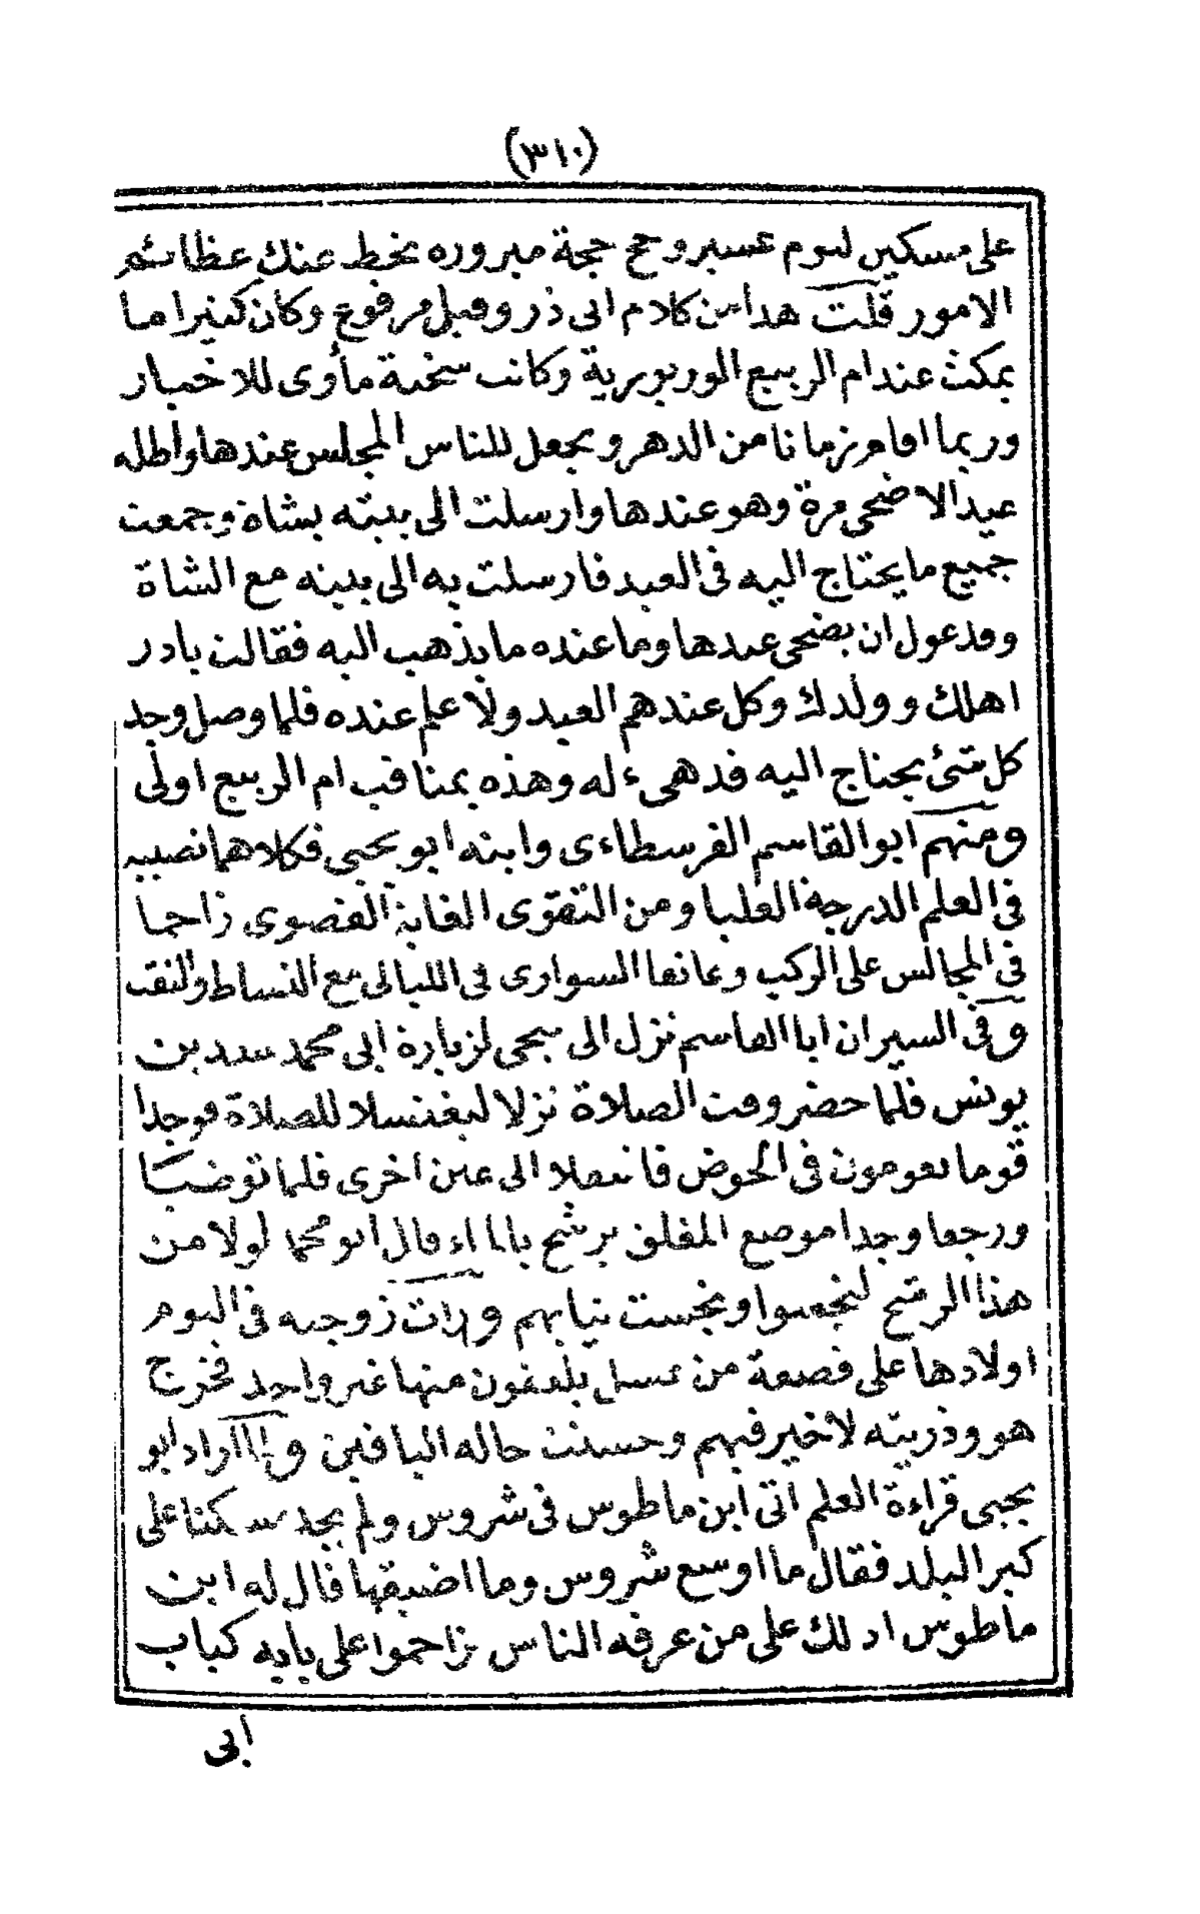 (٣١٠)
على مسكين ليوم عسير وحج حجة مبرورة يحط عنك عظائم
الامور قلت هذا من كلام ابى ذر وقيل مرفوع وكان كثيرا ما
يمكث عند ام الربيع الوريورية وكانت سخية مأوى للاخيار
وربما اقام زمانا من الدهر ويجعل للناس المجلس عندها واظله
عيد الاضحى مرة وهو عندها وارسلت الى بيته بشاة وجمعت
جميع ما يحتاج اليه فى العيد فارسلت به الى بيته مع الشاة
وقد عول ان يضحى عندها وما عنده ما يذهب اليه فقالت بادر
اهلك وولدك وكل عندهم العيد ولا علم عنده فلما وصل وجد
كل شئ يحتاج اليه قد هىء له وهذه بمناقب ام الربيع اولى
ومنهم ابو القاسم الفرسطاءى وابنه ابو يحيى فكلاهما نصيبه
فى العلم الدرجة العليا ومن التقوى الغاية القصوى زاحما
فى المجالس على الركب وعانقا السوارى فى الليالى مع النساط والنقت
وفى السير ان ابا القاسم نزل الى يحيى لزيارة ابى محمد سدد بن
يونس فلما حضر وقت الصلاة نزلا ليغتسلا للصلاة فوجدا
قوما يعومون فى الحوض فانتقلا الى عين اخرى فلما توضيا
ورجعا وجدا موضع المغلق يرشح بالماء قال ابو محمد لولا من
هذا الرشح لنجسوا ونجست ثيابهم ورات زوجه فى النوم
اولادها على قصعة من عسل يلعقون منها غير واحد فخرج
هو وذريته لا خير فيهم وحسنت حاله الباقين ولما اراد ابو
يحيى قراءة العلم اتى ابن ماطوس فى شروس ولم يجد سكنا على
كبر البلد فقال ما اوسع شروس وما اضيقها قال له ابن
ماطوس ادلك على من عرفه الناس تزاحموا على بابه كباب
ابى